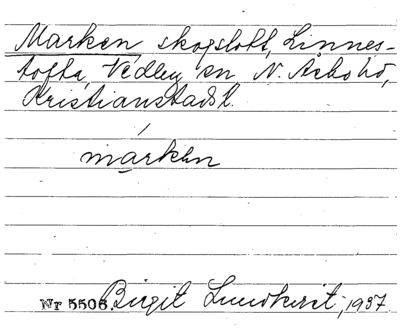 Marken skogslott, Linnes-
tofta, Vedby sn N. Åsbo hd,
Kristianstads l.
márken
Nr 5506. Birgit Lundkvist, 1937